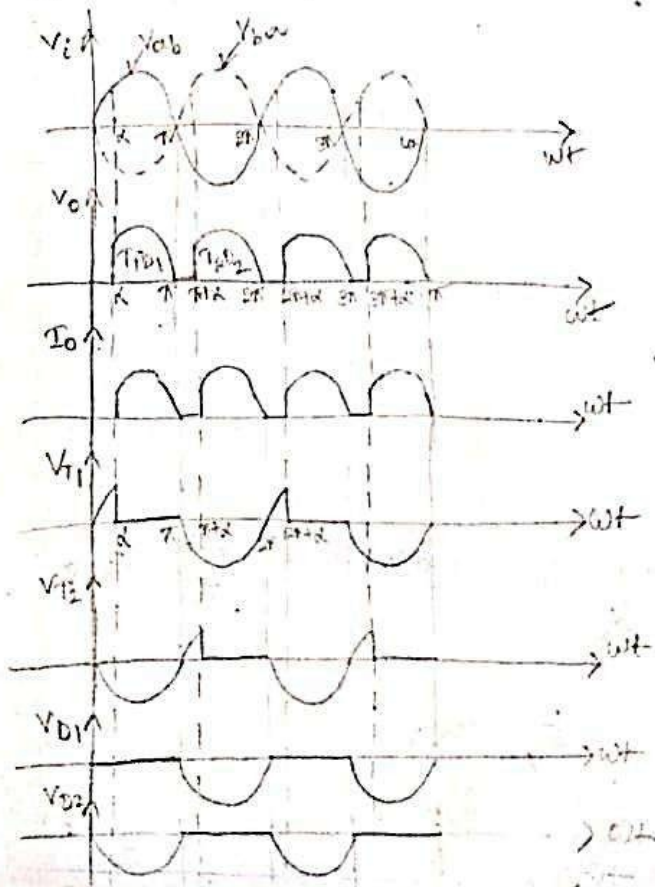 Vi Vab Vba
α π 2π 3π 4π
wt
Vo
T1D1 T2D2
α π π+α 2π 2π+α 3π 3π+α π
wt
Io
wt
VT1
α π π+α 2π 2π+α
wt
VT2
wt
VD1
wt
VD2